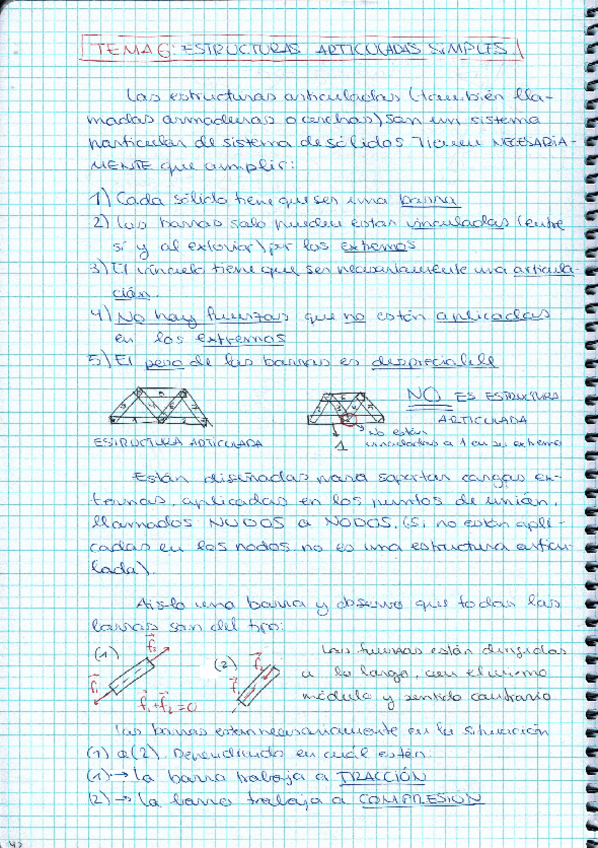 TEMA 6: ESTRUCTURAS ARTICULADAS SIMPLES
Las estructuras articuladas (también lla-
madas armaduras o cerchas) son un sistema
particular de sistema de sólidos. Tienen NECESARIA-
MENTE que cumplir:
1) Cada sólido tiene que ser una barra
2) Las barras solo pueden estar vinculadas (entre
sí y al exterior) por los extremos
3) El vínculo tiene que ser necesariamente una articula-
ción.
4) No hay fuerzas que no estén aplicadas
en los extremos
5) El peso de las barras es despreciable
NO ES ESTRUCTURA
ARTICULADA
ESTRUCTURA ARTICULADA
1
No están
vinculadas a 1 en su extremo
Están diseñadas para soportar cargas ex-
ternas, aplicadas en los puntos de unión,
llamados NUDOS o NODOS. (Si no están apli-
cadas en los nodos no es una estructura articu-
lada).
Aíslo una barra y observo que todas las
barras son del tipo:
(1) f₂ f₁ f₁+f₂=0
(2)
Las fuerzas están dirigidas
a lo largo, con el mismo
módulo y sentido contrario
Las barras están necesariamente en la situación
(1) o (2). Dependiendo en cuál estén
(1) → La barra trabaja a TRACCIÓN
(2) → La barra trabaja a COMPRESIÓN